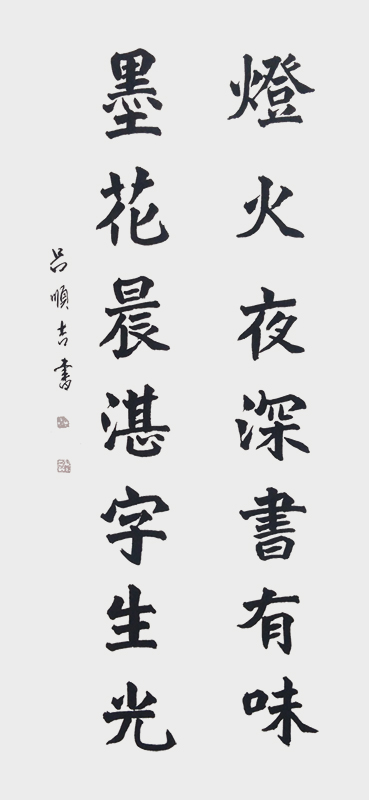 燈火夜深書有味
墨花晨湛字生光
呂順吉書